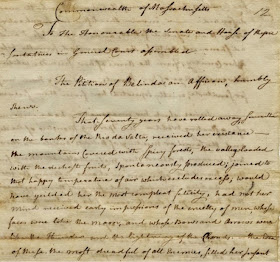 Commonwealth of Massachusetts 12
To the Honourable the Senate and House of Repre
sentatives in General Court assembled
The Petition of Belinda an Affrican, humbly
shews.
That seventy years have rolled away, since she
on the banks of the Rio da Valta, received her existence—
the mountains Covered with spicy forests, the valleys loaded
with the richest fruits, spontaneously produced; joined to
that happy temperature of air which excludes excess, would
have yielded her the most compleat felicity, had not her
Mind received early impressions of the cruelty of men, whose
faces were like the moon, and whose Bows and Arrows were
like the Thunder and the lightning of the Clouds. — the idea
of these, the most dreadful of all Enemies, filled her infant